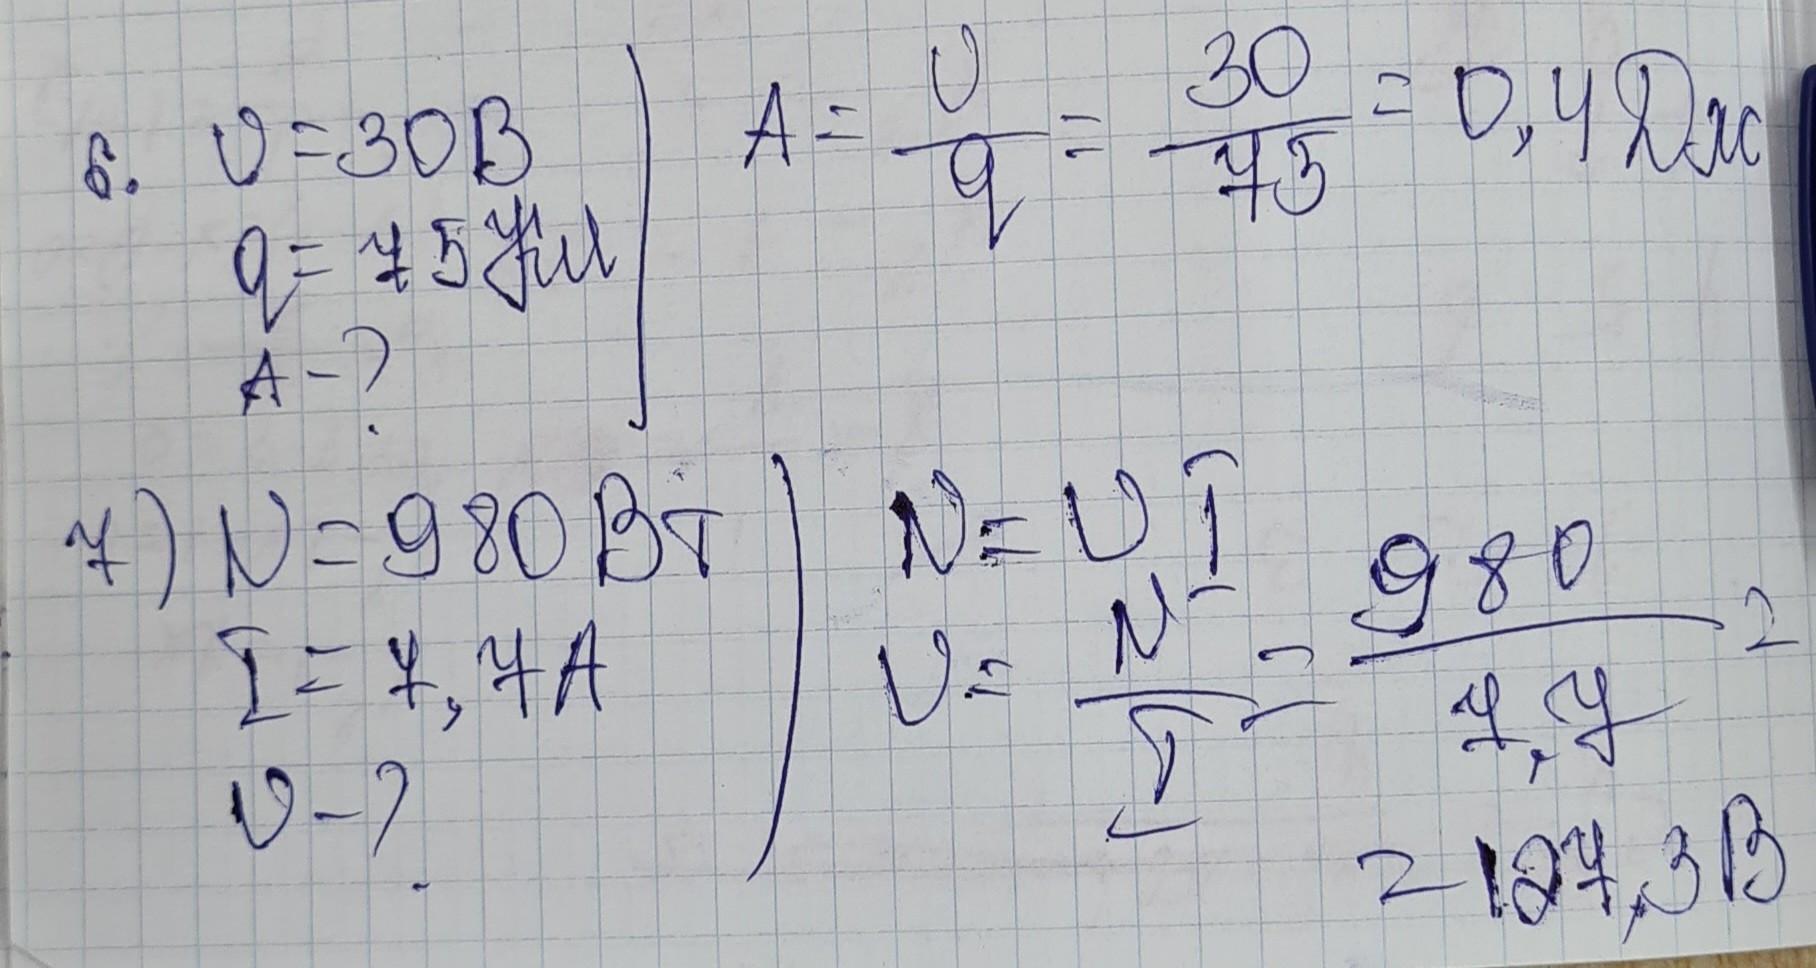 6. U=30В
q=75Кл
A-?
A = U/q = 30/75 = 0,4 Дж
7) N=980Вт
I=7,7А
U-?
N=UI
U= N/I = 980/7,7 =
= 127,3В